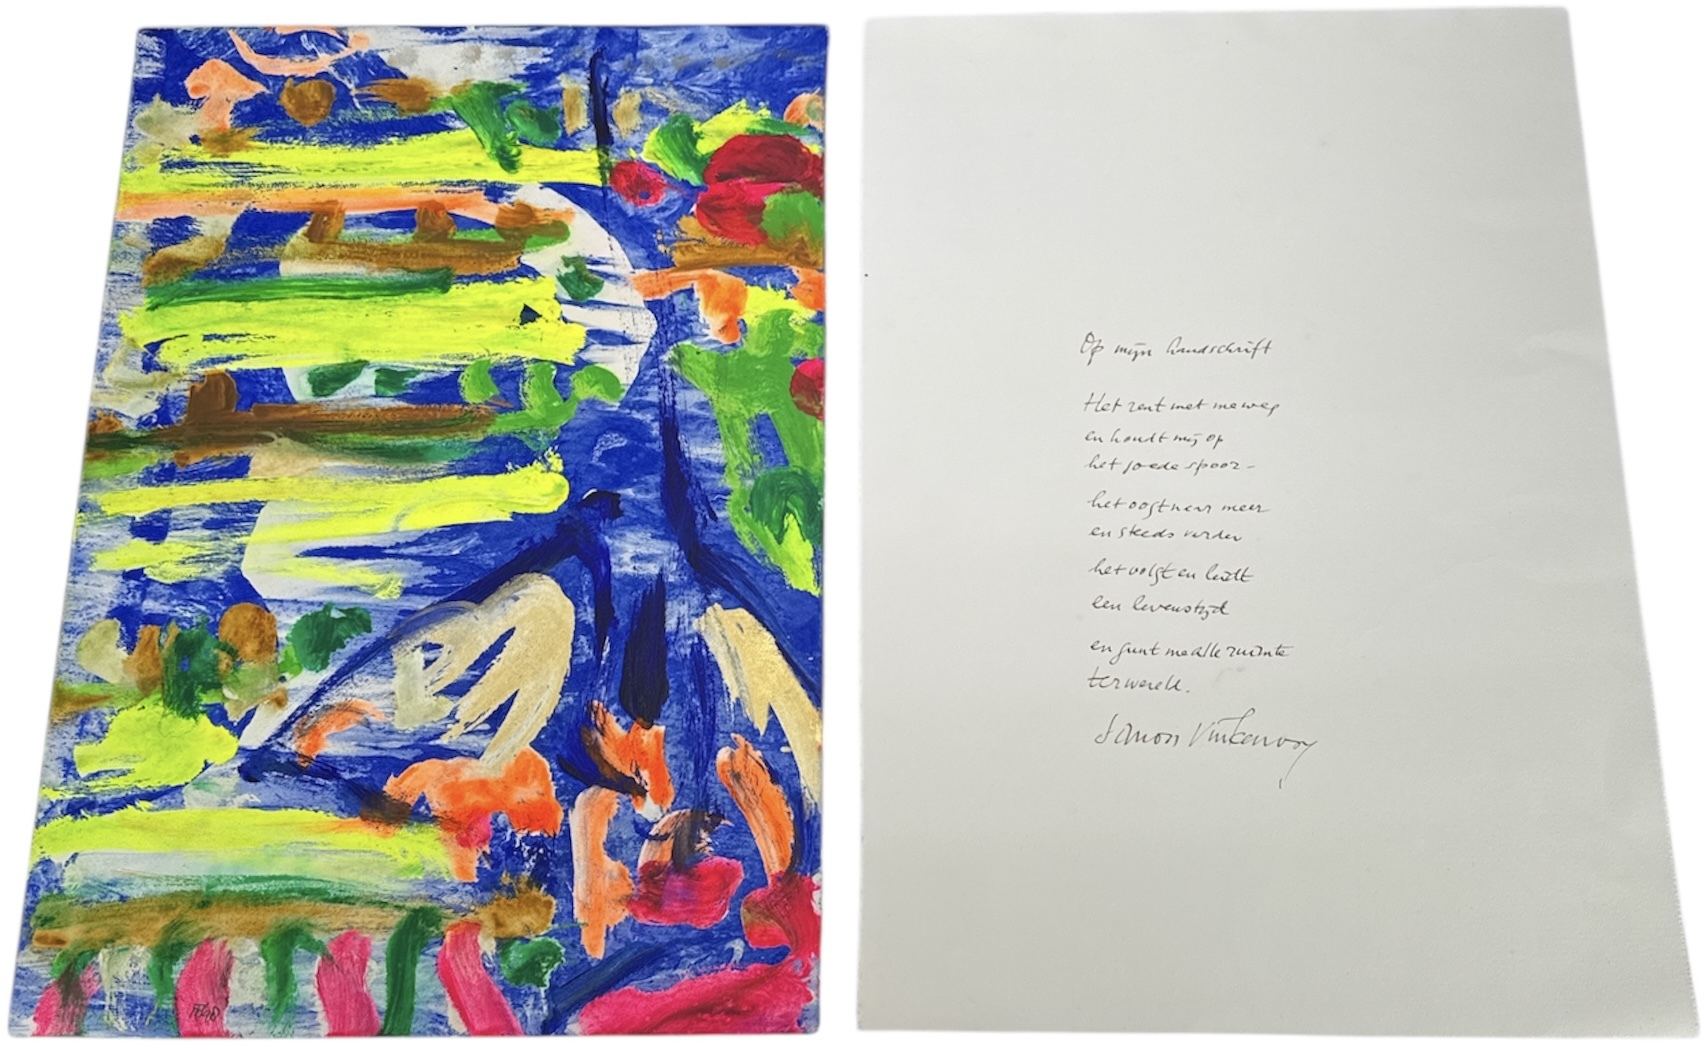 Op mijn handschrift
Het rent met me weg
en houdt mij op
het goede spoor -
het oogst naar meer
en steeds verder
het volgt en leidt
een levenstijd
en gunt me alle ruimte
ter wereld.
Simon Vinkenoog